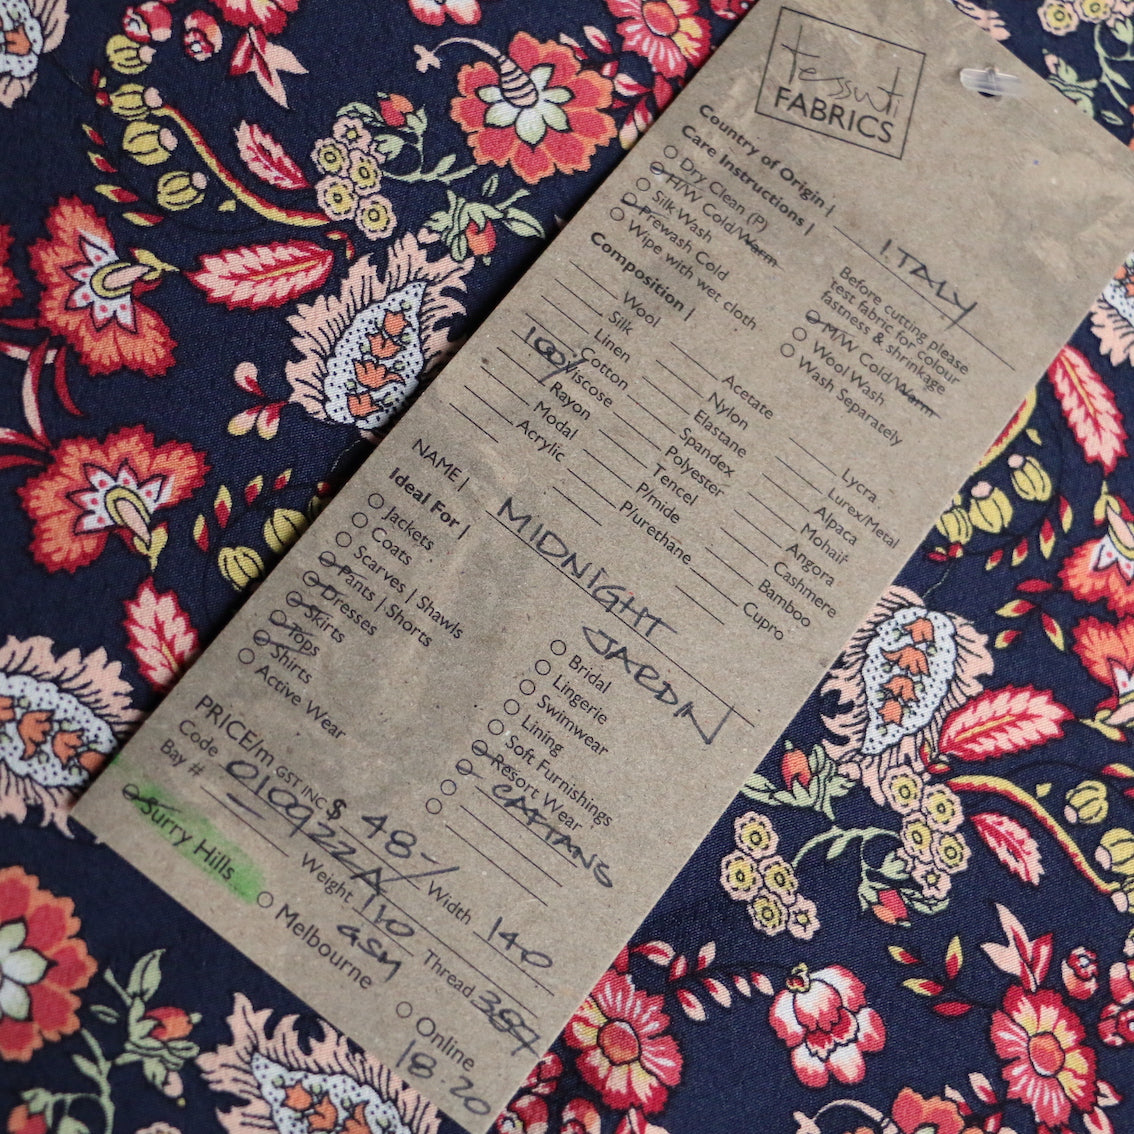 tessuti
FABRICS
Country of Origin | ITALY
Care Instructions |
Dry Clean (P)
H/W Cold/Warm
Silk Wash
Prewash Cold
Wipe with wet cloth
Before cutting please
test fabric for colour
fastness & shrinkage
M/W Cold/Warm
Wool Wash
Wash Separately
Composition |
Wool
Silk
Linen
Cotton
100% Viscose
Rayon
Modal
Acrylic
Acetate
Nylon
Elastane
Spandex
Polyester
Tencel
P/mide
P/urethane
Lycra
Lurex/Metal
Alpaca
Mohair
Angora
Cashmere
Bamboo
Cupro
NAME | MIDNIGHT
JARDIN
Ideal For |
Jackets
Coats
Scarves | Shawls
Pants | Shorts
Dresses
Skirts
Tops
Shirts
Active Wear
Bridal
Lingerie
Swimwear
Lining
Soft Furnishings
Resort Wear
CAFTANS
PRICE/m GST INC $ 48-/ Width 140
Code 010922A
Bay # Weight 110 GSM Thread 387
Surry Hills
Melbourne
Online
18.20